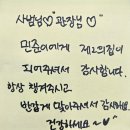 사범님♡ 관장님♡
민준이에게 제2의집이
되어주셔서 감사합니다.
항상 챙겨주시고
반갑게 맞아주셔서 감사해요.
건강하세요~♡